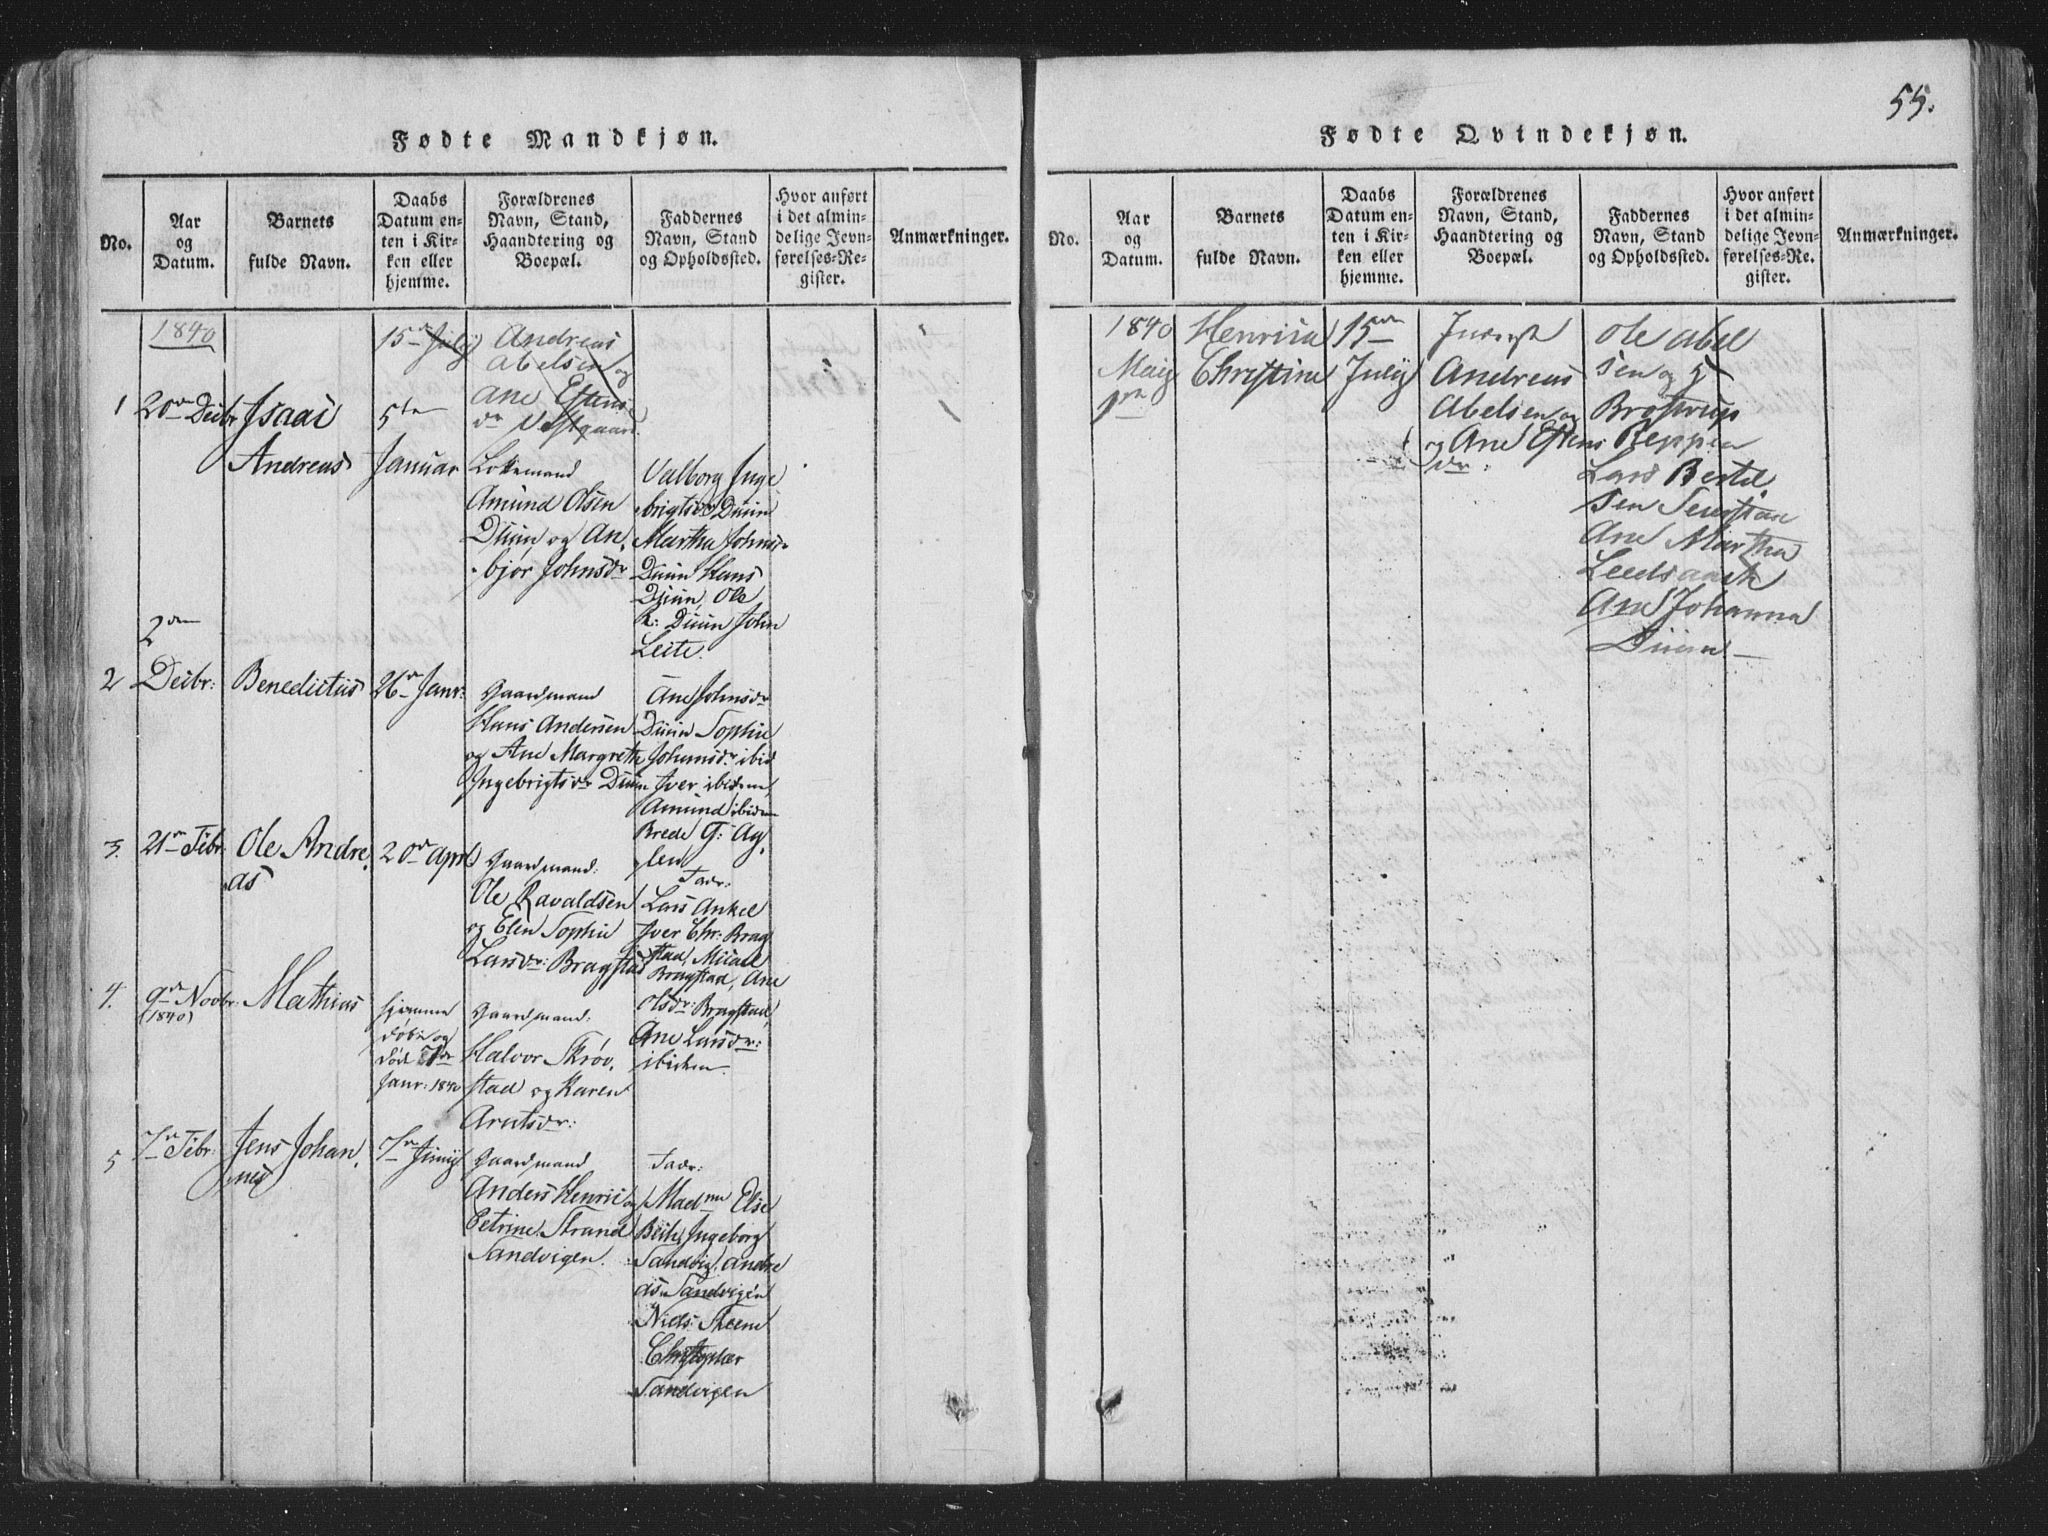 55.
Fødte Mandkjøn.
No.
Aar
og
Datum.
Barnets
fulde Navn.
Daabs
Datum en-
ten i Kir-
ken eller
hjemme.
Forældrenes
Navn, Stand,
Haandtering og
Boepæl.
Faddernes
Navn, Stand
og Opholdssted.
Hvor anført
i det almin-
delige Jevn-
førelses-Re-
gister.
Anmærkninger.
1840
15de July
Andreas
Abelsen og
Ane Estens
dr Vestgaard
1
20de Decbr
Isaac
Andreas
5te
Januar
Lottemand
Amund Olsen
Duun og An,
bjør Johnsdr
Valborg Inge
brigtsdr Duun
Martha Johns-
Duun Hans
Duun, Ole
R: Duun John
Leite.
2
2den
Decbr:
Benedictus
26de Janr:
Gaardmand
Hans Andersen
og Ane Margreth
Ingebrigtsdr Duun
Ane Johnsdr
Duun Sophie
Johansdr ibid
Iver ibidem,
Amund ibidem
Brede G: Ag,
len
3.
21de Febr:
Ole Andre,
as
20de Aprl
Gaardmand:
Ole Ravaldsen
og Elen Sophie
Larsdr: Bragstad
Fadr:
Lars Ankel
Iver Chr: Brag
stad, Micael
Bragstad, Ane
Olsdr: Bragstad,
Ane Larsdr:
ibidem.
4.
9de Novbr:
(1840)
Mathias
hjemme
døbt og
død
Janr: 1840
Gaardmand:
Halvor Skrøv,
stad og Karen
Arntsdr:
5
7de Febr:
Jens Johan,
nes
7de Junij
Gaardmand
Anders Henric og
Petrine Strand
Sandvigen.
Fadr:
Madme Else
Beth, Ingeborg
Sandvig, Andre
as Sandvigen
Niels Steene
Christopher
Sandvigen
Fødte Qvindekjøn.
No.
Aar
og
Datum.
Barnets
fulde Navn.
Daabs
Datum en-
ten i Kir-
ken eller
hjemme.
Forældrenes
Navn, Stand,
Haandtering og
Boepæl.
Faddernes
Navn, Stand
og Opholdssted.
Hvor anført
i det almin-
delige Jevn-
førelses-Re-
gister.
Anmærkninger.
1840
Maij
Henrica
Christine
15de
Julij
Inderst
Andreas
Abelsen og
og Ane Estens
dr:
Ole Abel
sen og
Brostrup
Beppen
Lars Bertel
sen
Ane Martha
Ane Johanna
Duun